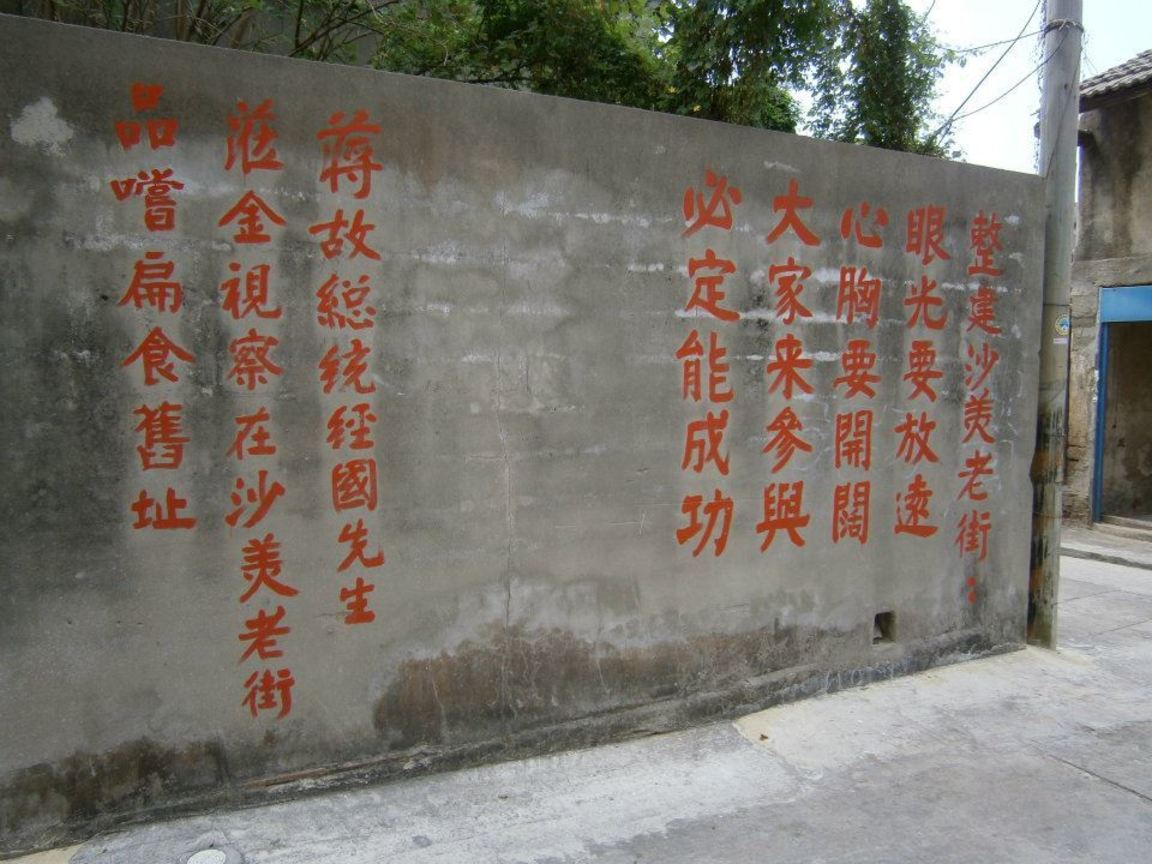 整建沙美老街：
眼光要放遠
心胸要開闊
大家来參與
必定能成功
蔣故總统經國先生
蒞金視察在沙美老街
品嚐扁食舊址